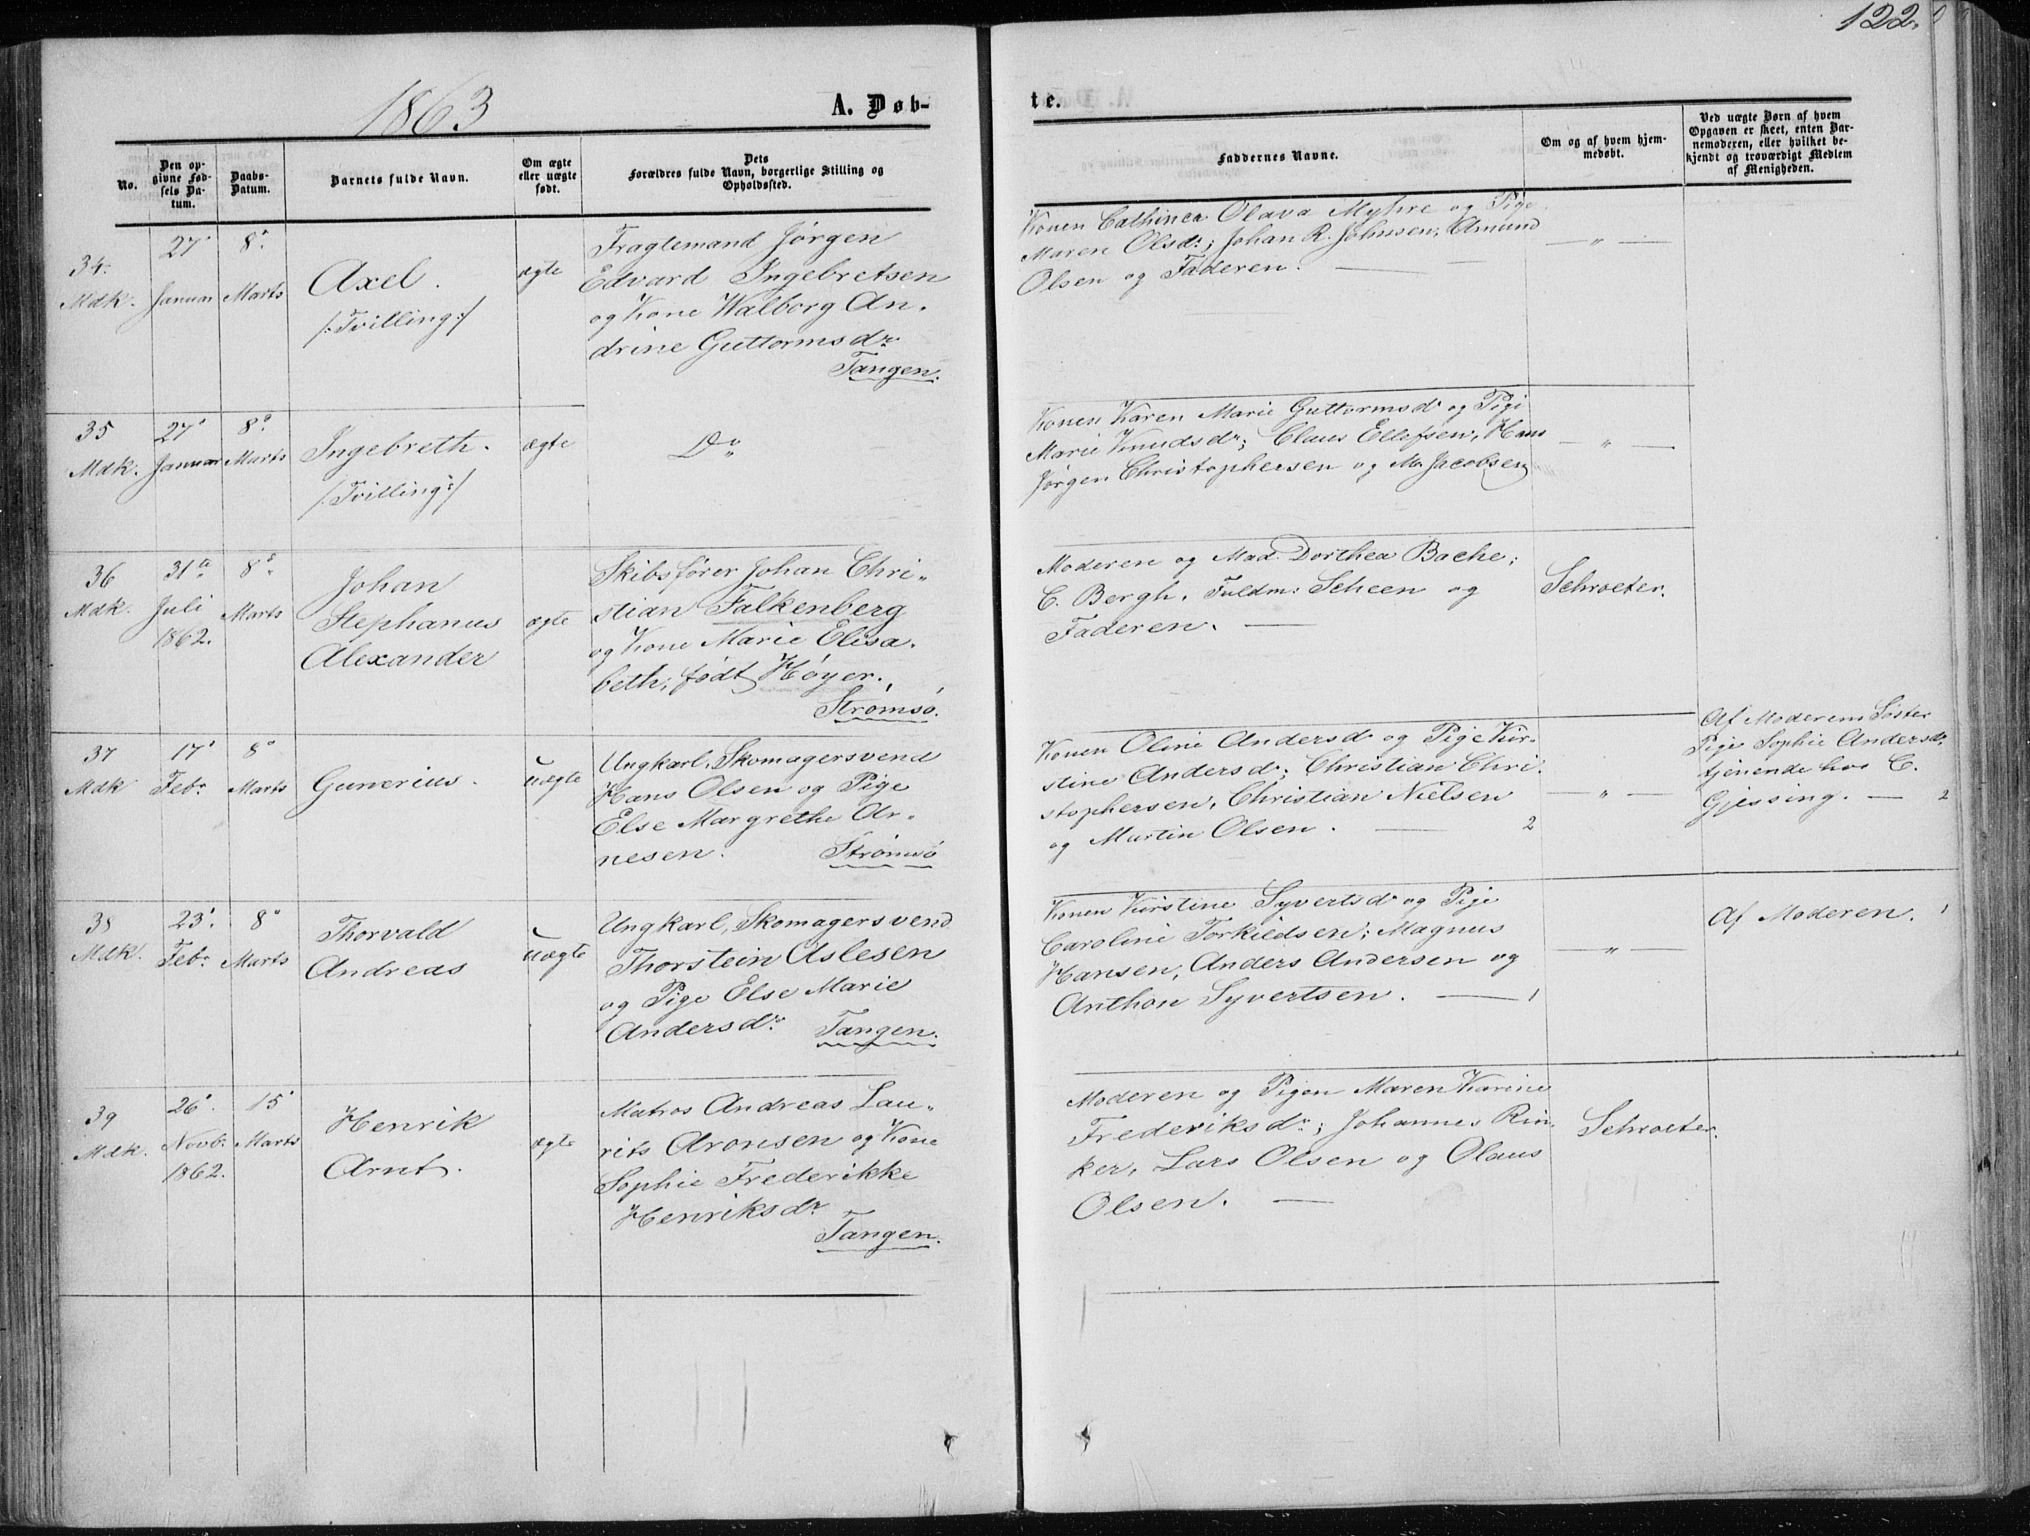 122.
1863
A. Døb-
te.
No.
Den op-
givne Fød-
sels Da-
tum.
Daabs-
Datum.
Barnets fulde Navn.
Om ægte
eller uægte
født.
Dets
Forældres fulde Navn, borgerlige Stilling og
Opholdssted.
Faddernes Navne.
Om og af hvem hjem-
medøbt.
Ved uægte Børn af hvem
Opgaven er skeet, enten Bar-
nemoderen, eller hvilket be-
kjendt og troværdigt Medlem
af Menigheden.
34.
Mdk.
27'
Januar
8'
Marts
Axel.
/:Tvilling:/
ægte
Fragtemand Jørgen
Edvard Ingebretsen
og Kone Walborg An-
drine Guttormsdr.
Tangen.
Konen Cathinca Olava Myhre og Pige
Maren Olsdr; Johan R. Johnsen, Amund
Olsen og Faderen. —
— " —
35
Mdk.
27'
Januar
8'
Marts
Ingebreth.
/:Tvilling:/
ægte
Do
Konen Karen Marie Guttormsdr og Pige
Marie Knudsdr; Claus Ellefsen, Hans
Jørgen Christophersen og M. Jacobsen
— " —
36
Mdk.
31te
Juli
1862.
8'
Marts
Johan
Stephanus
Alexander
ægte
Skibsfører Johan Chri-
stian Falkenberg
og Kone Marie Elisa-
beth, født Høyer.
Strømsø.
Moderen og Mad. Dorthea Bache;
C. Bergh, Fuldm: Scheen og
Faderen. —
Schroeter.
37
Mdk
17'
Febr
8'
Marts
Gunerius.
uægte
Ungkarl, Skomagersvend
Hans Olsen og Pige
Else Margrethe Ar-
nesen.
Strømsø
Konen Oline Andersdr og Pige Kir-
stine Andersdr; Christian Chri-
stophersen, Christian Nielsen
og Martin Olsen. — 2
— " —
Af Moderens Søster
Pige Sophie Andersdr
tjenende hos C.
Gjessing. — 2
38
Mdk.
23'
Febr
8'
Marts
Thorvald
Andreas
uægte
Ungkarl, Skomagersvend
Thorstein Aslesen
og Pige Else Marie
Andersdr.
Tangen.
Konen Kirstine Syvertsdr og Pige
Caroline Torkildsen; Magnus
Hansen, Anders Andersen og
Anthon Syvertsen. — 1
— " —
Af Moderen. 1
39
Mdk.
26'
Novbr
1862.
15'
Marts
Henrik
Arnt.
ægte
Matros Andreas Lau-
rits Aronsen og Kone
Sophie Frederikke
Henriksdr
Tangen.
Moderen og Pigen Maren Karine
Frederiksdr; Johannes Rin-
ker, Lars Olsen og Olaus
Olsen. —
Schroeter.